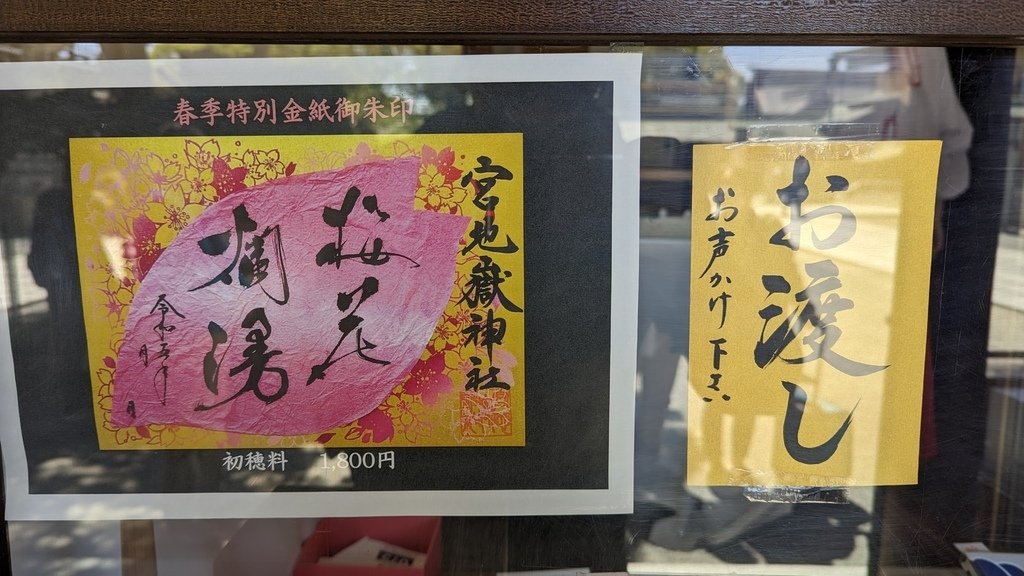 春季特別金紙御朱印
宮地嶽神社
桜花
爛漫
令和五年
月
日
初穂料 1,800円
お渡し
お声かけ下さい